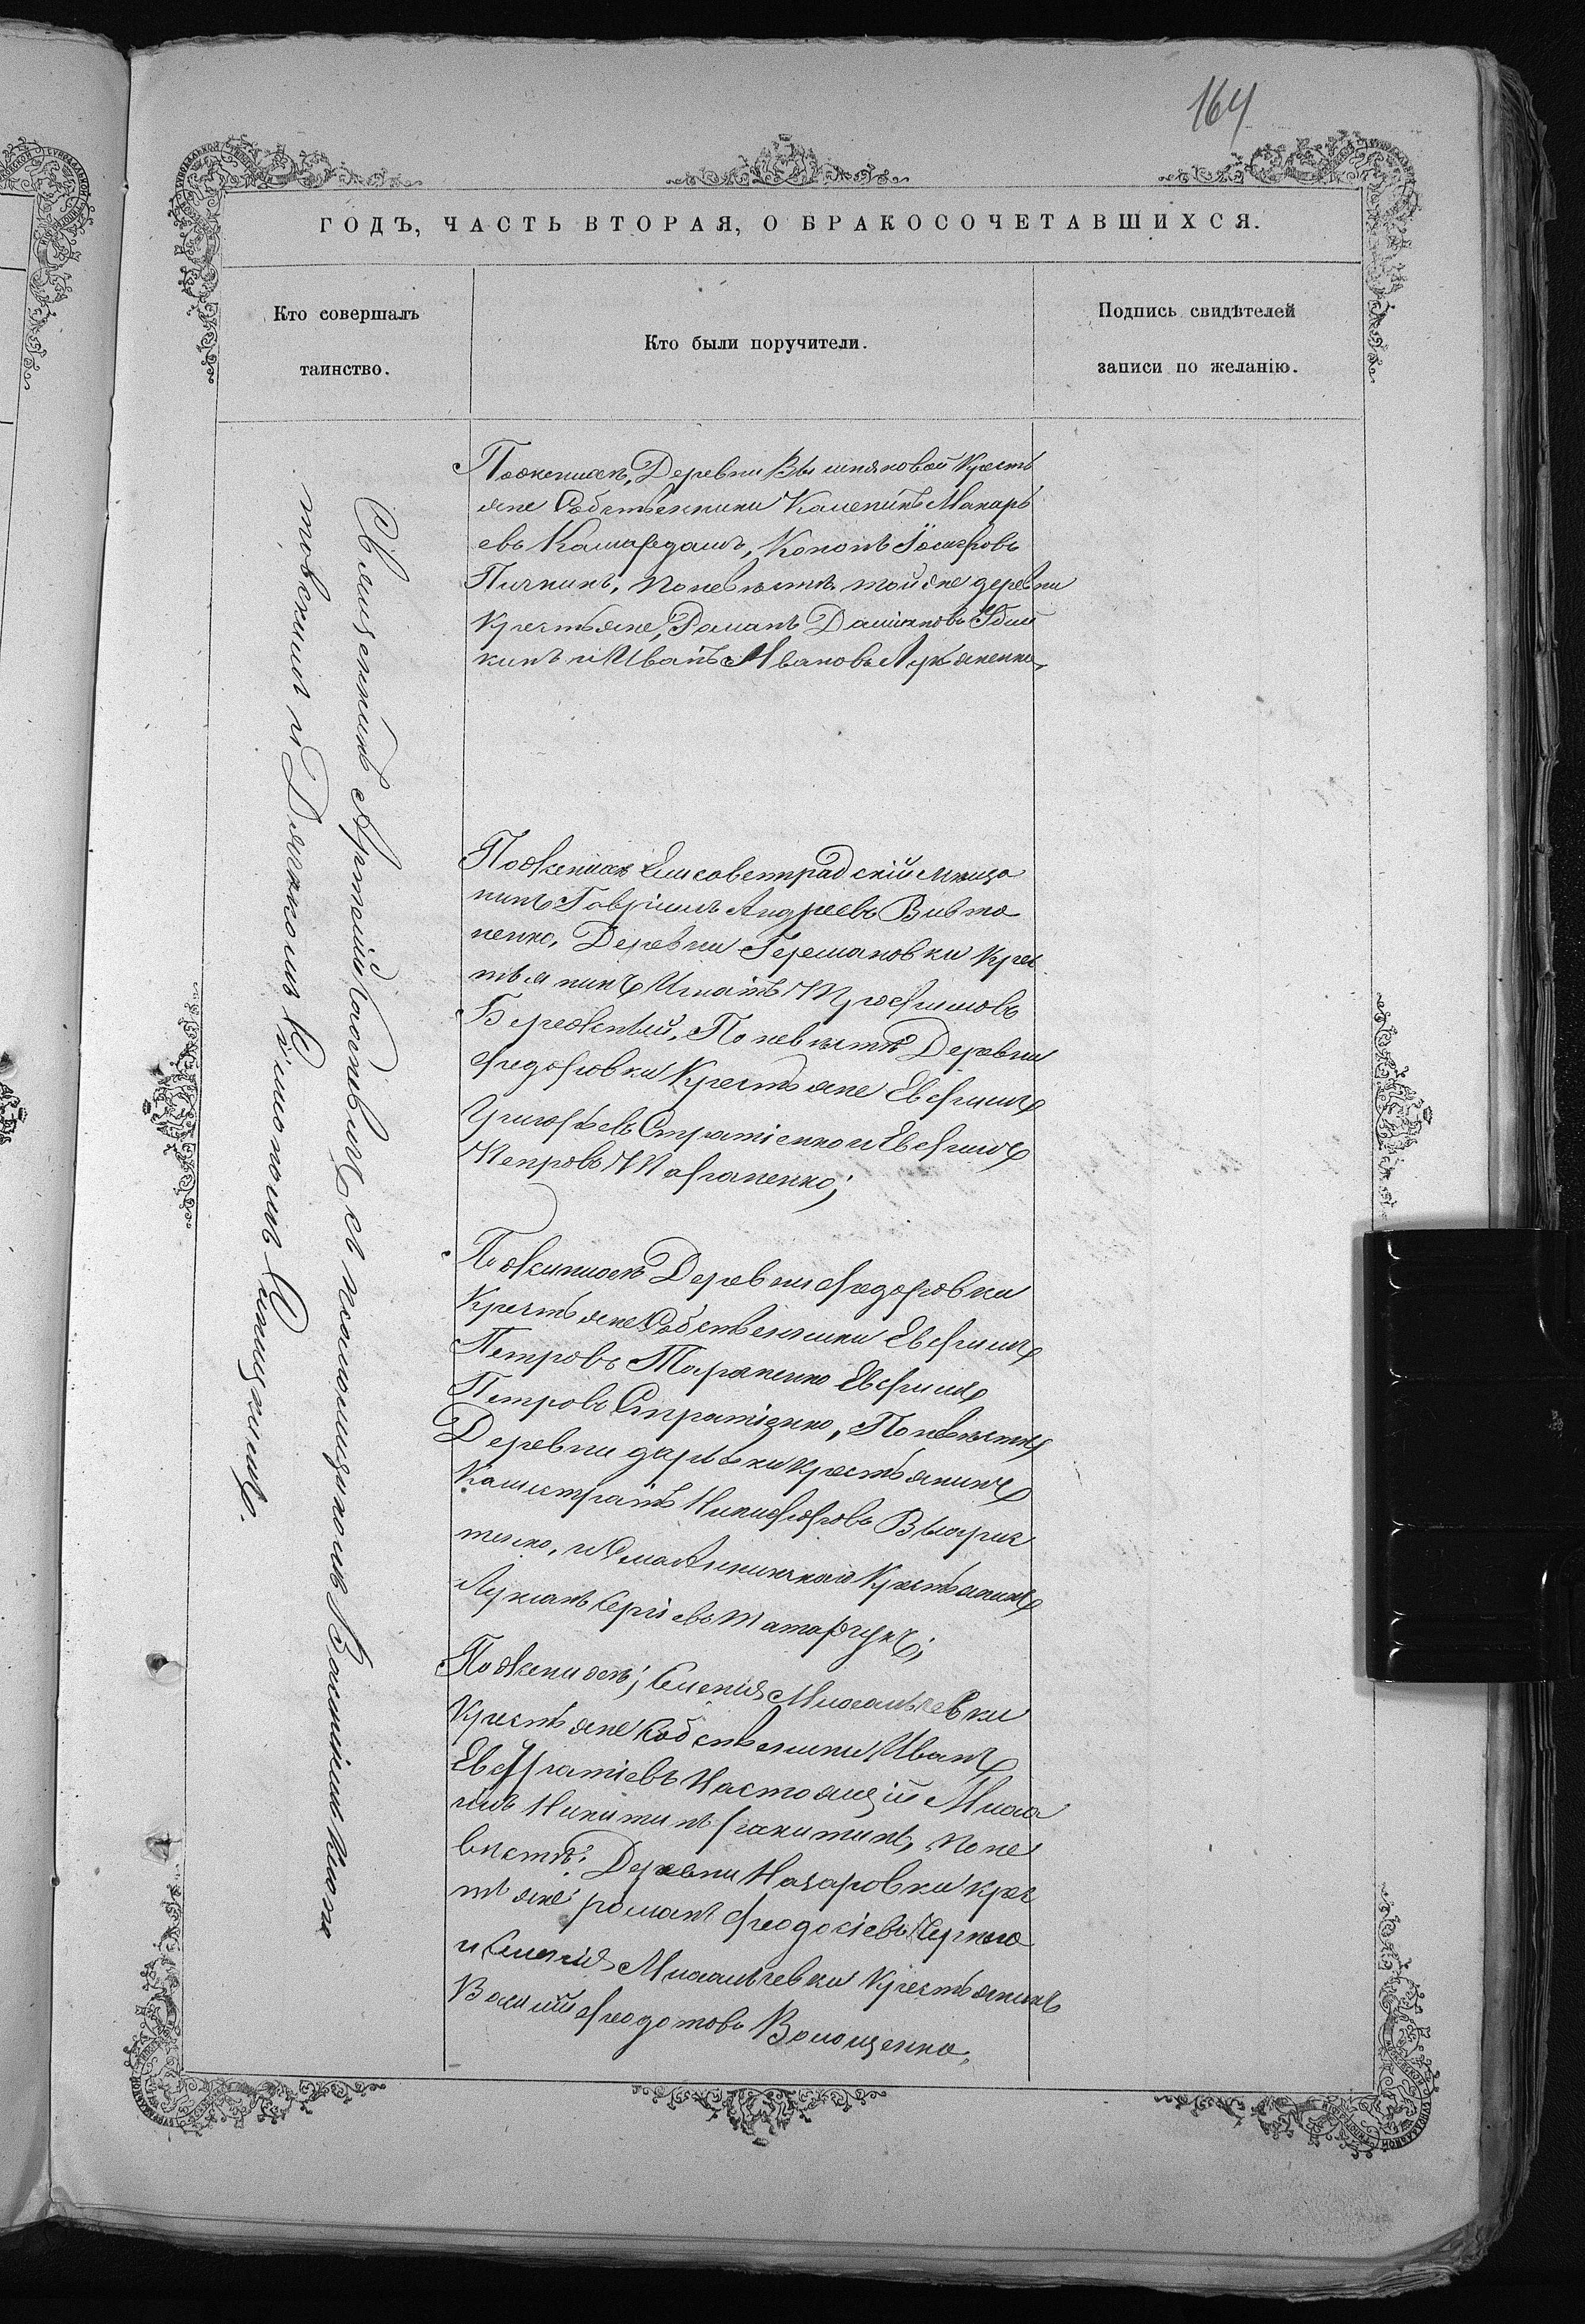 164
ГОДЪ, ЧАСТЬ ВТОРАЯ, О БРАКОСОЧЕТАВШИХСЯ.
Кто совершалъ
таинство.
Кто были поручители.
Подпись свидѣтелей
записи по желанію.
Священникъ Артемій с помощникомъ Василіемъ
и Дьячкомъ Симеономъ
По женихѣ, Деревни Вишняковой Кресть
яне Собственники Каленикъ Макарь
евъ Кононъ Іосифовъ
Пичкинъ, по невѣстѣ той же деревни
Крестьяне, Романъ Даміановъ
кинъ и Иванъ Ивановъ Лукьяненко,
По женихѣ Елисаветградскій мѣща
нинъ Гавріилъ Андреевъ Вивто
ненко, Деревни Германовки Крес
тьянинъ Игнатъ Трофимовъ
Бережный, По невѣстѣ Деревни
Федоровки Крестьяне Евфимъ
Григорьевъ Стратіенко и Евфимъ
Петровъ Тараненко;
По женихѣ Деревни Федоровки
Крестьяне Собственники Евфимъ
Петровъ Тараненко Евфимъ
Петровъ Стратіенко, По невѣстѣ
Деревни Дарьевки крестьянинъ
Калистратъ Никифоровъ
тенко, и Села Аникина Крестьянинъ
Лукіанъ Сергіевъ Татарчукъ;
По женихѣ; Селенія Михальчевки
Крестьяне Собственники Иванъ
Евстратіевъ Настоящій Миха
илъ Никитинъ по не
вѣстѣ: Деревни Назаровки крес
тьяне: романъ Феодосіевъ
и Селенія Михальчевки Крестьянинъ
Василій Феодотовъ Волощенко,